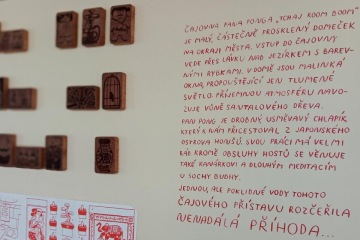 ČAJOVNA PANA PONGA „TCHAJ ROOM BOOM"
JE MALÝ, ČÁSTEČNĚ PROSKLENÝ DOMEČEK
NA OKRAJI MĚSTA. VSTUP DO ČAJOVNY
VEDE PŘES LÁVKU NAD JEZÍRKEM S BAREV-
NÝMI RYBKAMI. V DOMĚ JSOU MALINKÁ
OKNA, PROPOUŠTĚJÍCÍ JEN TLUMENÉ
SVĚTLO. PŘÍJEMNOU ATMOSFÉRU NAVO-
ZUJE VŮNĚ SANTALOVÉHO DŘEVA.
PAN PONG JE DROBNÝ, USMĚVAVÝ CHLAPÍK,
KTERÝ K NÁM PŘICESTOVAL Z JAPONSKÉHO
OSTROVA HONŠÚ. SVOU PRÁCI MÁ VELMI
RÁD. KROMĚ OBSLUHY HOSTŮ SE VĚNUJE
TAKÉ KANÁRKOVI A DLOUHÝM MEDITACÍM
U SOCHY BUDHY.
JEDNOU, ALE POKLIDNÉ VODY TOHOTO
ČAJOVÉHO PŘÍSTAVU ROZČEŘILA
NENADÁLÁ PŘÍHODA...